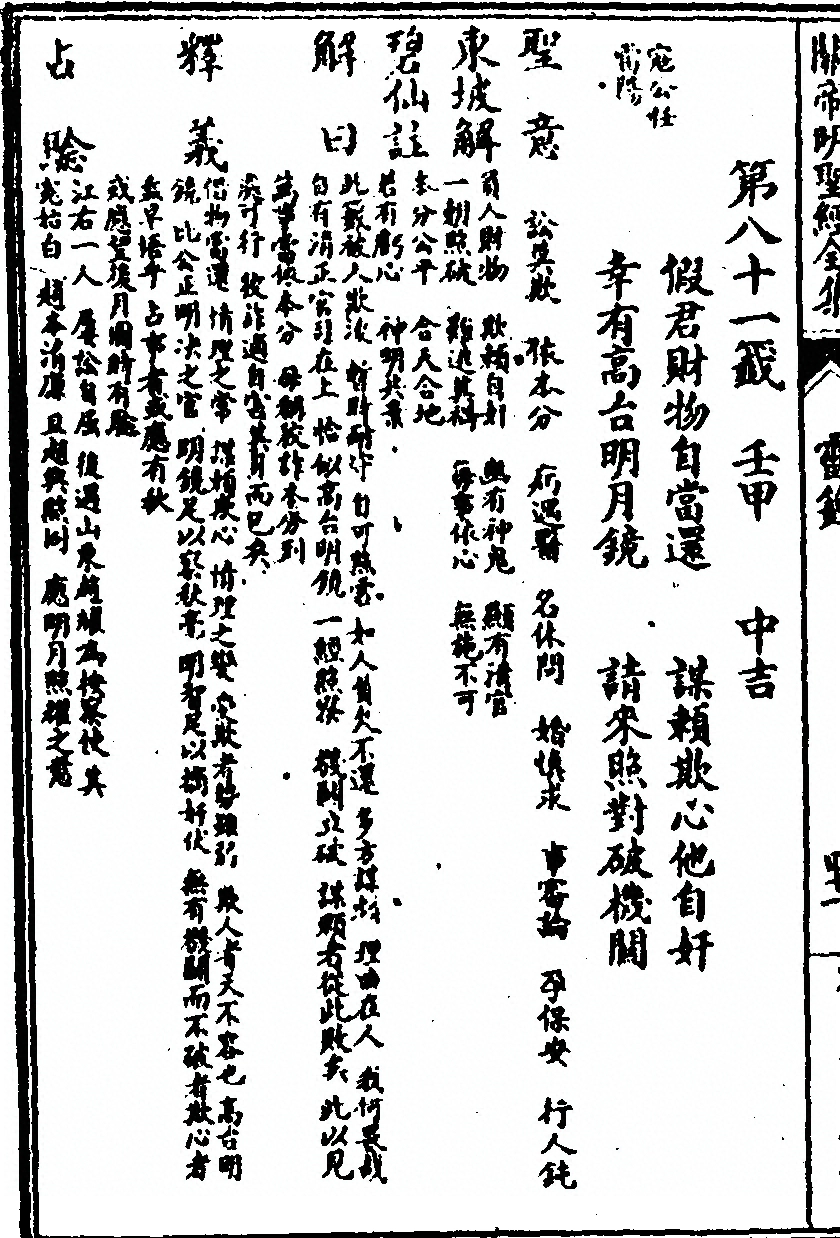 關帝明聖經全集
靈籤
第八十一籤 壬甲 中吉
寇公任
雷陽
假君財物自當還 謀賴欺心他自奸
幸有高台明月鏡 請來照對破機關
聖意 訟莫欺 依本分 病遇醫 名休問 婚慎求 事審論 孕保安 行人鈍
東坡解 負人財物 欺賴自奸 幽有神鬼 顯有清官
一朝照破 難逃其科 每事依心 無施不可
碧仙註 本分公平 合天合地
若有虧心 神明共棄
解曰 此籤被人欺 自可照雪 如人負欠不還 多方謀 理曲在人 我何畏哉
自有清正官司在上 恰似高台明鏡 一經照 機關立破 謀賴者從此敗矣 此以見
萬事當依本分 毋賴狡詐 本分到
處可行 狡詐適自害其身而已矣
釋義 借物當還 情理之常 謀賴欺心 情理之變 受欺者 雖弱 欺人者天不容也 高台明
鏡 比公正明決之官 明鏡足以察秋毫 明智足以摘奸伏 無有機關而不破者 欺心者
盍早悟乎 占事者或應有秋
或應望後月圓時有驗
占驗 江右一人 屢訟自屈 後遇山東趙 為按察使 其
冤始白 趙本清廉 且趙與照同 應明月照耀之意